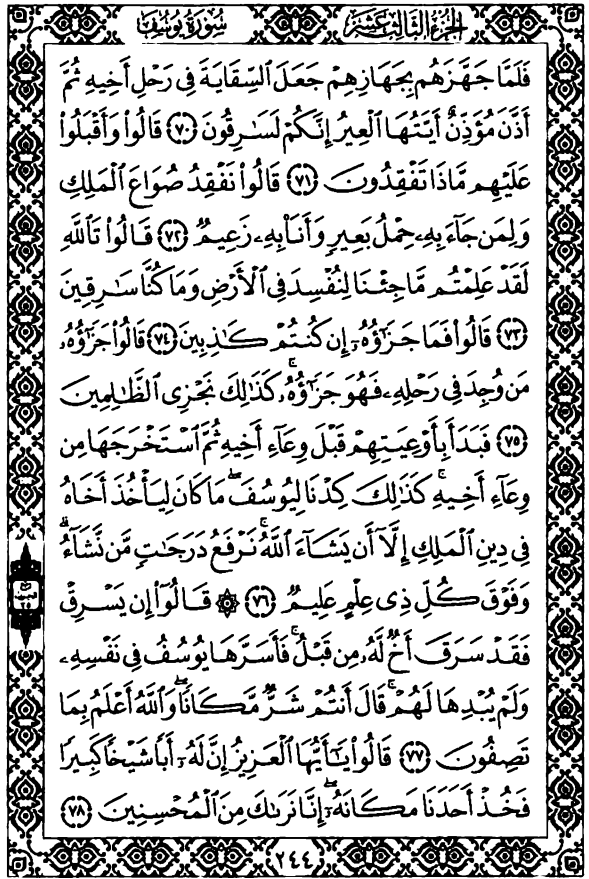 سُورَةُ يُوسُفَ
الجُزْءُ الثَّالِثَ عَشَرَ
فَلَمَّا جَهَّزَهُم بِجَهَازِهِمْ جَعَلَ السِّقَايَةَ فِي رَحْلِ أَخِيهِ ثُمَّ
أَذَّنَ مُؤَذِّنٌ أَيَّتُهَا الْعِيرُ إِنَّكُمْ لَسَارِقُونَ ٧٠ قَالُوا وَأَقْبَلُوا
عَلَيْهِم مَّاذَا تَفْقِدُونَ ٧١ قَالُوا نَفْقِدُ صُوَاعَ الْمَلِكِ
وَلِمَن جَاءَ بِهِ حِمْلُ بَعِيرٍ وَأَنَا بِهِ زَعِيمٌ ٧٢ قَالُوا تَاللَّهِ
لَقَدْ عَلِمْتُم مَّا جِئْنَا لِنُفْسِدَ فِي الْأَرْضِ وَمَا كُنَّا سَارِقِينَ
٧٣ قَالُوا فَمَا جَزَاؤُهُ إِن كُنتُمْ كَاذِبِينَ ٧٤ قَالُوا جَزَاؤُهُ
مَن وُجِدَ فِي رَحْلِهِ فَهُوَ جَزَاؤُهُ ۚ كَذَٰلِكَ نَجْزِي الظَّالِمِينَ
٧٥ فَبَدَأَ بِأَوْعِيَتِهِمْ قَبْلَ وِعَاءِ أَخِيهِ ثُمَّ اسْتَخْرَجَهَا مِن
وِعَاءِ أَخِيهِ ۚ كَذَٰلِكَ كِدْنَا لِيُوسُفَ ۖ مَا كَانَ لِيَأْخُذَ أَخَاهُ
فِي دِينِ الْمَلِكِ إِلَّا أَن يَشَاءَ اللَّهُ ۚ نَرْفَعُ دَرَجَاتٍ مَّن نَّشَاءُ ۗ
وَفَوْقَ كُلِّ ذِي عِلْمٍ عَلِيمٌ ٧٦ ۞ قَالُوا إِن يَسْرِقْ
فَقَدْ سَرَقَ أَخٌ لَّهُ مِن قَبْلُ ۚ فَأَسَرَّهَا يُوسُفُ فِي نَفْسِهِ
وَلَمْ يُبْدِهَا لَهُمْ ۚ قَالَ أَنتُمْ شَرٌّ مَّكَانًا ۖ وَاللَّهُ أَعْلَمُ بِمَا
تَصِفُونَ ٧٧ قَالُوا يَا أَيُّهَا الْعَزِيزُ إِنَّ لَهُ أَبًا شَيْخًا كَبِيرًا
فَخُذْ أَحَدَنَا مَكَانَهُ ۖ إِنَّا نَرَاكَ مِنَ الْمُحْسِنِينَ ٧٨
٢٤٤